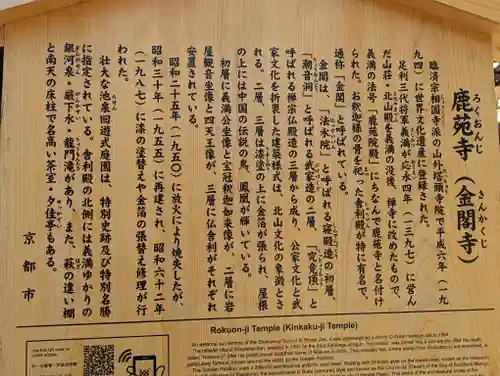 鹿苑寺（金閣寺）
ろくおんじ
きんかくじ
臨済宗相国寺派の山外塔頭寺院で平成六年（一九
九四）に世界文化遺産に登録された。
足利三代将軍義満が応永四年（一三九七）に営ん
だ山荘・北山殿を義満の没後、禅寺に改めたもので、
義満の法号「鹿苑院殿」にちなんで鹿苑寺と名付け
られた。お釈迦様の骨を祀った舎利殿が特に有名で、
通称「金閣」と呼ばれている。
金閣は、「法水院」と呼ばれる寝殿造の初層、
「潮音洞」と呼ばれる武家造の二層、「究竟頂」と
呼ばれる禅宗仏殿造の三層から成り、公家文化と武
家文化を折衷した建築様式は、北山文化の象徴とさ
れる。二層、三層は漆塗の上に金箔が張られ、屋根
の上には中国の伝説の鳥、鳳凰が輝いている。
初層に義満公坐像と宝冠釈迦如来像が、二層に岩
屋観音坐像と四天王像が、三層に仏舎利がそれぞれ
安置されている。
昭和二十五年（一九五〇）に放火により焼失したが、
昭和三十年（一九五五）に再建され、昭和六十二年
（一九八七）に漆の塗替えや金箔の張替え修理が行
われた。
壮大な池泉回遊式庭園は、特別史跡及び特別名勝
に指定されている。舎利殿の北側には義満ゆかりの
銀河泉・巌下水・龍門滝があり、また、萩の違い棚
と南天の床柱で名高い茶室・夕佳亭もある。
京都市
Rokuon-ji Temple (Kinkaku-ji Temple)